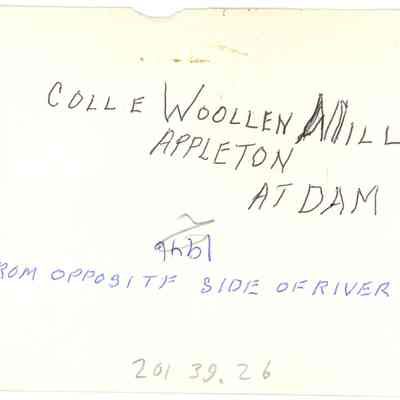 COLLE WOOLLEN MILL
APPLETON
AT DAM
ROM OPPOSITE SIDE OF RIVER
201 39. 26